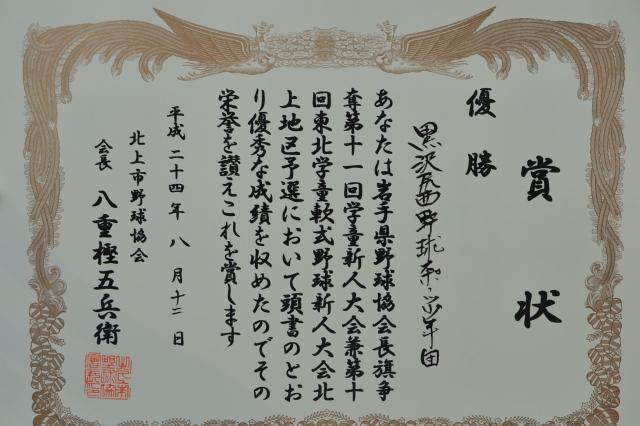 賞状
優勝
黒沢尻西野球スポ少年団
あなたは岩手県野球協会長旗争
奪第十一回学童新人大会兼第十
回東北学童軟式野球新人大会北
上地区予選において頭書のとお
り優秀な成績を収めたのでその
栄誉を讃えこれを賞します
平成二十四年八月十二日
北上市野球協会
会長 八重樫五兵衛